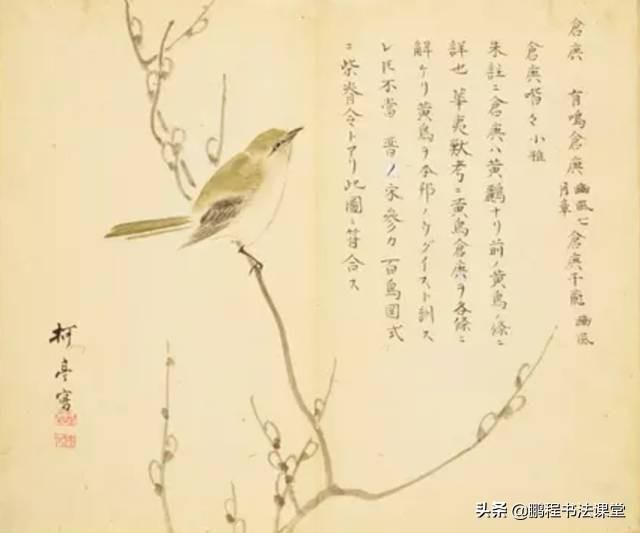 倉庚 有鳴倉庚 豳風七月章 倉庚于飛 豳風
倉庚喈々 小雅
朱註ニ倉庚ハ黄鸝ナリ前ノ黄鳥ノ條ニ
詳也 華夷獸考ニ黄鳥倉庚ヲ各條ニ
解ケリ黄鳥ヲ本邦ノウグイスト訓ス
レ𪜈不當 晋ノ宋參カ百鳥図式
ニ柴脊令トアリ此圖ニ符合ス
柯亭寫
头条 @鹏程书法课堂